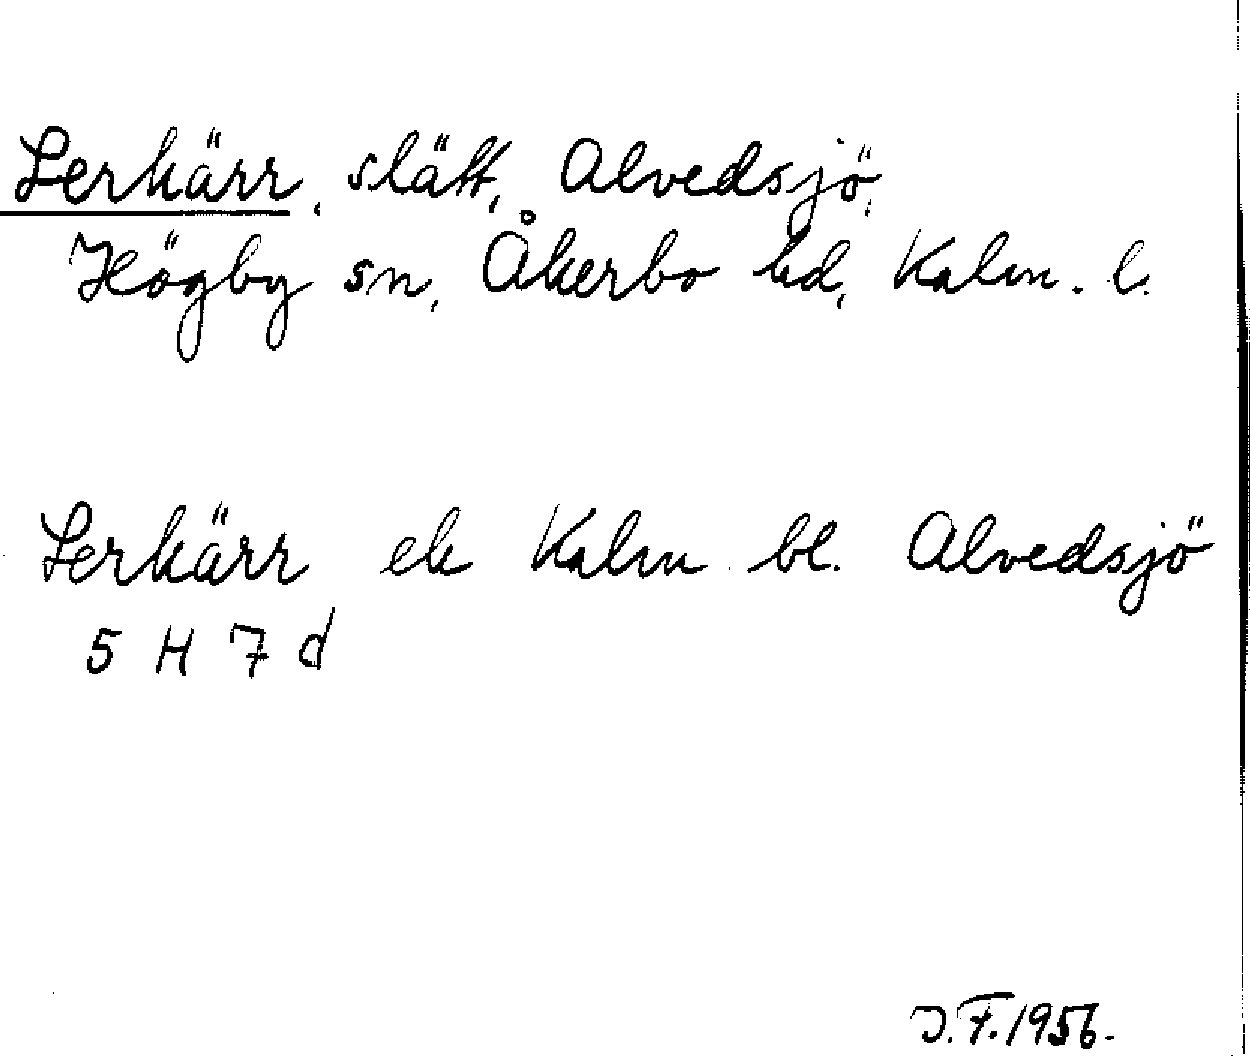 Lerkärr, slätt, Alvedsjö,
Högby sn, Åkerbo hd, Kalm. l.
Lerkärr ek Kalm bl. Alvedsjö
5 H 7 d
J.F. 1956.